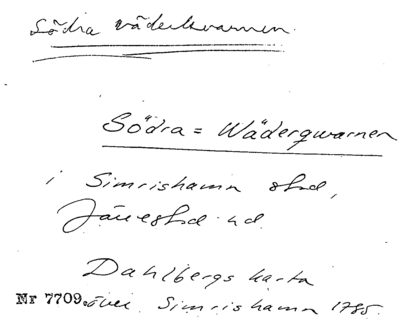 Södra väderkvarnen.
Södra = Wäderqwarnen
i Simrishamn stad,
Järrestad hd.
Dahlbergs karta
Nr 7709. över Simrishamn 1785.